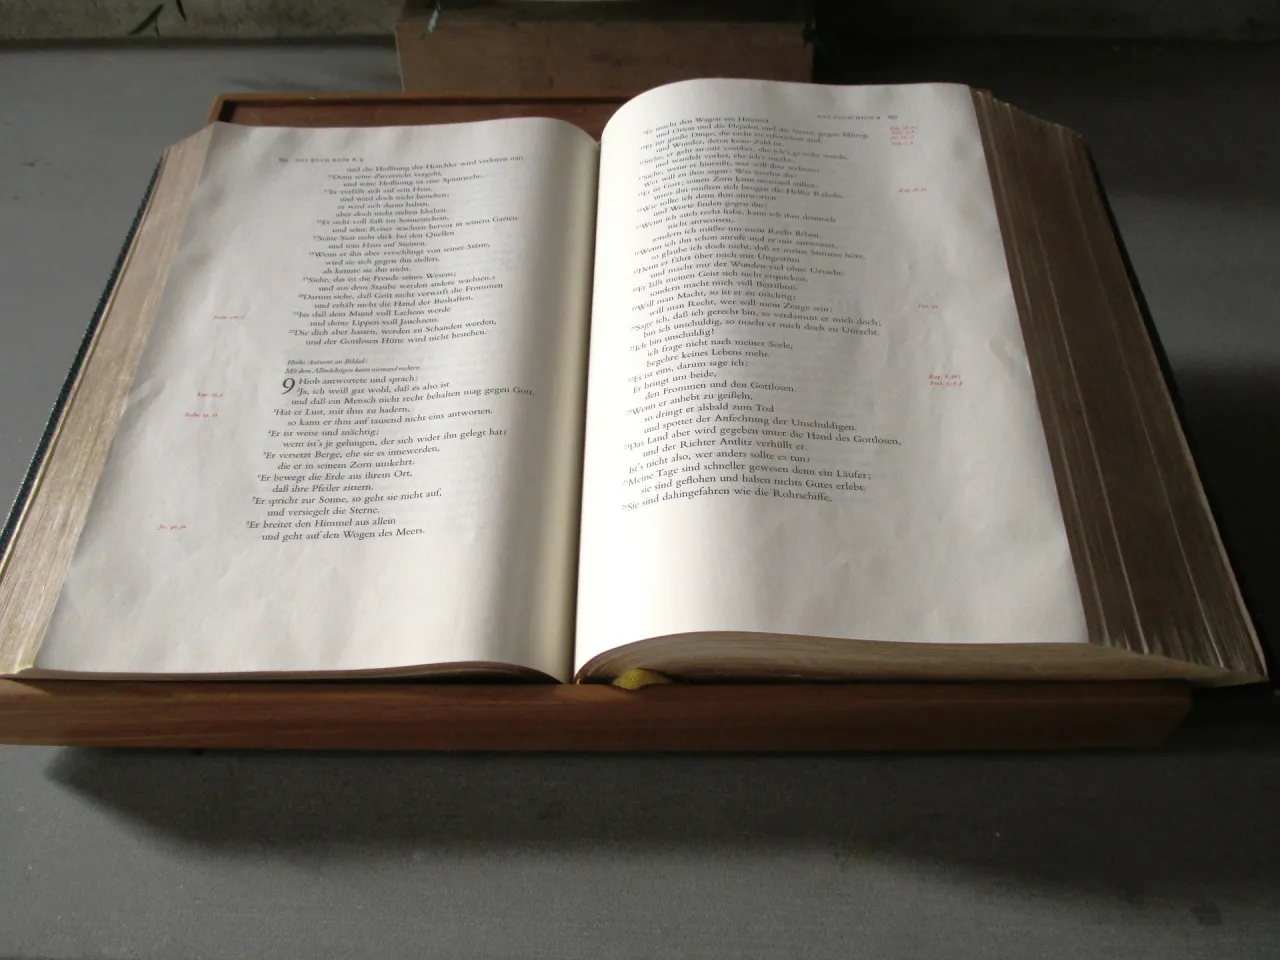 DAS BUCH HIOB 8.9
und die Hoffnung des Heuchlers wird verloren sein.
¹⁴Denn seine Zuversicht vergeht,
und seine Hoffnung ist eine Spinnwebe.
¹⁵Er verläßt sich auf sein Haus,
und wird doch nicht bestehen;
er wird sich daran halten,
aber doch nicht stehen bleiben.
¹⁶Er steht voll Saft im Sonnenschein,
und seine Reiser wachsen hervor in seinem Garten.
¹⁷Seine Saat steht dick bei den Quellen
und sein Haus auf Steinen.
¹⁸Wenn er ihn aber verschlingt von seiner Stätte,
wird sie sich gegen ihn stellen,
als kennte sie ihn nicht.
¹⁹Siehe, das ist die Freude seines Wesens;
und aus dem Staube werden andere wachsen.
²⁰Darum siehe, daß Gott nicht verwirft die Frommen
und erhält nicht die Hand der Boshaften,
²¹bis daß dein Mund voll Lachens werde
und deine Lippen voll Jauchzens.
²²Die dich aber hassen, werden zu Schanden werden,
und der Gottlosen Hütte wird nicht bestehen.
Hiobs Antwort an Bildad:
Mit dem Allmächtigen kann niemand rechten
9 Hiob antwortete und sprach:
²Ja, ich weiß gar wohl, daß es also ist
und daß ein Mensch nicht recht behalten mag gegen Gott.
³Hat er Lust, mit ihm zu hadern,
so kann er ihm auf tausend nicht eins antworten.
⁴Er ist weise und mächtig;
wem ist's je gelungen, der sich wider ihn gelegt hat?
⁵Er versetzt Berge, ehe sie es innewerden,
die er in seinem Zorn umkehrt.
⁶Er bewegt die Erde aus ihrem Ort,
daß ihre Pfeiler zittern.
⁷Er spricht zur Sonne, so geht sie nicht auf,
und versiegelt die Sterne.
⁸Er breitet den Himmel aus allein
und geht auf den Wogen des Meers.
DAS BUCH HIOB 9
⁹Er macht den Wagen am Himmel
und Orion und die Plejaden und die Sterne gegen Mittag.
¹⁰Er tut große Dinge, die nicht zu erforschen sind,
und Wunder, deren keine Zahl ist.
¹¹Siehe, er geht an mir vorüber, ehe ich's gewahr werde,
und wandelt vorbei, ehe ich's merke.
¹²Siehe, wenn er hinreißt, wer will ihm wehren?
Wer will zu ihm sagen: Was machst du?
¹³Er ist Gott; seinen Zorn kann niemand stillen;
unter ihn mußten sich beugen die Helfer Rahabs.
¹⁴Wie sollte ich denn ihm antworten
und Worte finden gegen ihn?
¹⁵Wenn ich auch recht habe, kann ich ihm dennoch
nicht antworten,
sondern ich müßte um mein Recht flehen.
¹⁶Wenn ich ihn schon anrufe und er mir antwortet,
so glaube ich doch nicht, daß er meine Stimme höre.
¹⁷Denn er fährt über mich mit Ungestüm
und macht mir der Wunden viel ohne Ursache.
¹⁸Er läßt meinen Geist sich nicht erquicken,
sondern macht mich voll Betrübnis.
¹⁹Will man Macht, so ist er zu mächtig;
will man Recht, wer will mein Zeuge sein?
²⁰Sage ich, daß ich gerecht bin, so verdammt er mich doch;
bin ich unschuldig, so macht er mich doch zu Unrecht.
²¹Ich bin unschuldig!
ich frage nicht nach meiner Seele,
begehre keines Lebens mehr.
²²Es ist eins, darum sage ich:
Er bringt um beide,
den Frommen und den Gottlosen.
²³Wenn er anhebt zu geißeln,
so dringt er alsbald zum Tod
und spottet der Anfechtung der Unschuldigen.
²⁴Das Land aber wird gegeben unter die Hand des Gottlosen,
und der Richter Antlitz verhüllt er.
Ist's nicht also, wer anders sollte es tun?
²⁵Meine Tage sind schneller gewesen denn ein Läufer;
sie sind geflohen und haben nichts Gutes erlebt.
²⁶Sie sind dahingefahren wie die Rohrschiffe,